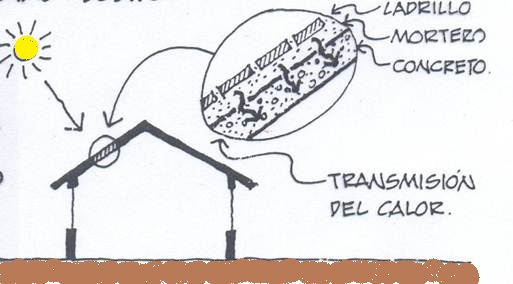 LADRILLO
MORTERO
CONCRETO.
TRANSMISIÓN
DEL CALOR.